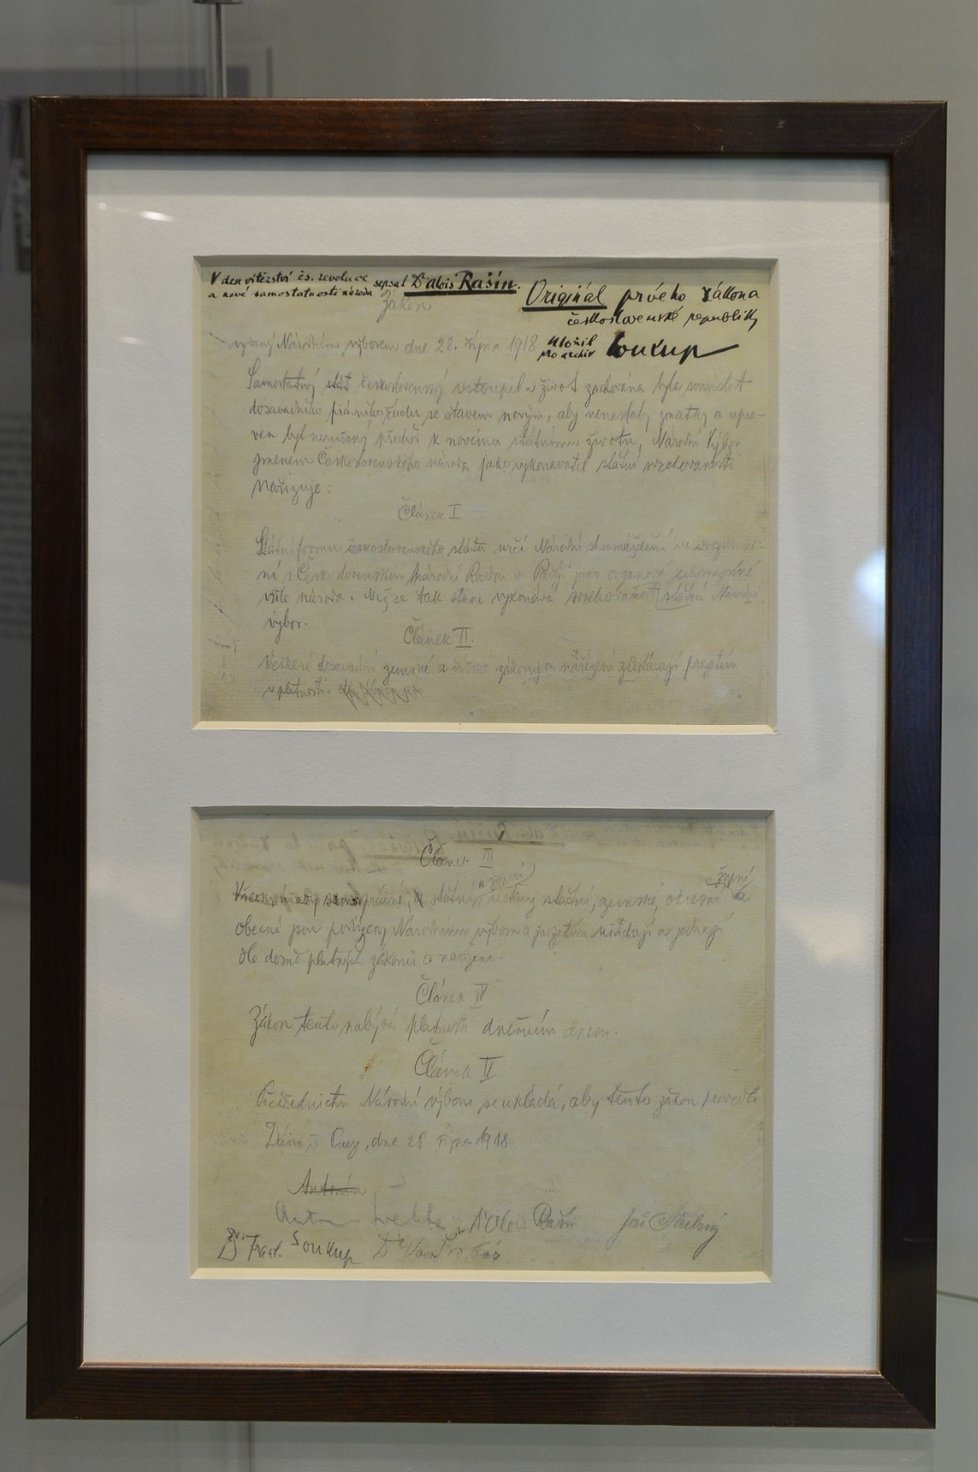 V den vítězství čs. revoluce
a nové samostatnosti národu sepsal Dr Alois Rašín.
Originál prvého zákona
československé republiky
uložil
pro archiv Soukup
Zákon
vydaný Národním výborem dne 28. října 1918
Samostatný stát československý vstoupil v život zachována byla souvislost
dosavadního právního řádu se stavem novým, aby nenastaly zmatky a upra-
ven byl nerušený přechod k novému státnímu životu, Národní Výbor
jménem Československého národa jako vykonavatel státní svrchovanosti
nařizuje:
Článek I.
Státní formu československého státu určí Národní shromáždění ve srozumě-
ní s Československou Národní Radou v Paříži jako orgánové jednomyslné
vůle národa. Než se tak stane vykonává svrchovanost státní Národní
výbor.
Článek II.
Veškeré dosavadní zemské a říšské zákony a nařízení zůstávají prozatím
v platnosti.
Článek III
státní, zemské, okresní
župní
obecní jsou podřízeny Národnímu výboru a prozatím úřadují a jednají
dle dosud platných zákonů a nařízení.
Článek IV
Zákon tento nabývá platnosti dnešním dnem.
Článek V
Předsednictvu Národní výboru se ukládá, aby tento zákon provedlo
Dáno v Praze, dne 28 října 1918
Antonín
Antonín Švehla Dr Alois Rašín Jiří Stříbrný
Dr. Frant. Soukup Dr Vavro Šrobár